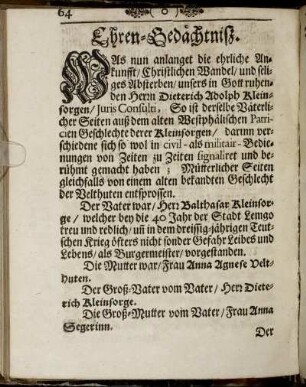 64 ( o )
Ehren-Gedächtniß.
WAs nun anlanget die ehrliche An-
kunfft/ Christlichen Wandel/ und seli-
ges Absterben/ unsers in Gott ruhen-
den Herrn Dieterich Adolph Klein-
sorgen/ Juris Consuln, So ist derselbe Väterli-
cher Seiten auß dem alten Westphälischen Patri-
cien Geschlechte derer Kleinsorgen/ darinn ver-
schiedene sich so wol in civil- als militair- Bedie-
nungen von Zeiten zu Zeiten signaliret und be-
rühmt gemacht haben; Mütterlicher Seiten
gleichsfalls von einem alten bekandten Geschlecht
der Velthuten entsprossen.
Der Vater war/ Herz Balthasar Kleinsor-
ge/ welcher bey die 40 Jahr der Stadt Lemgo
treu und redlich/ uñ in dem dreissig-jährigen Teut-
schen Krieg öfters nicht sonder Gefahr Leibes und
Lebens/ als Burgermeister/ vorgestanden.
Die Mutter war/ Frau Anna Agnese Velt-
huten.
Der Groß-Vater vom Vater/ Herz Diete-
rich Kleinsorge.
Die Groß-Mutter vom Vater/ Frau Anna
Segerinn.
Der